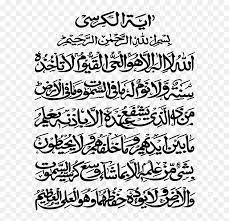 اية الكرسي
بسم الله الرحمن الرحيم
الله لا اله الا هو الحي القيوم لا تاخذه
سنة ولا نوم له ما في السموت وما في الارض
من ذا الذي يشفع عنده الا باذنه يعلم
ما بين ايديهم وما خلفهم ولا يحيطون
بشي من علمه الا بما شا وسع كرسيه السموت
والارض ولا يوده حفظهما وهو العلي العظيم